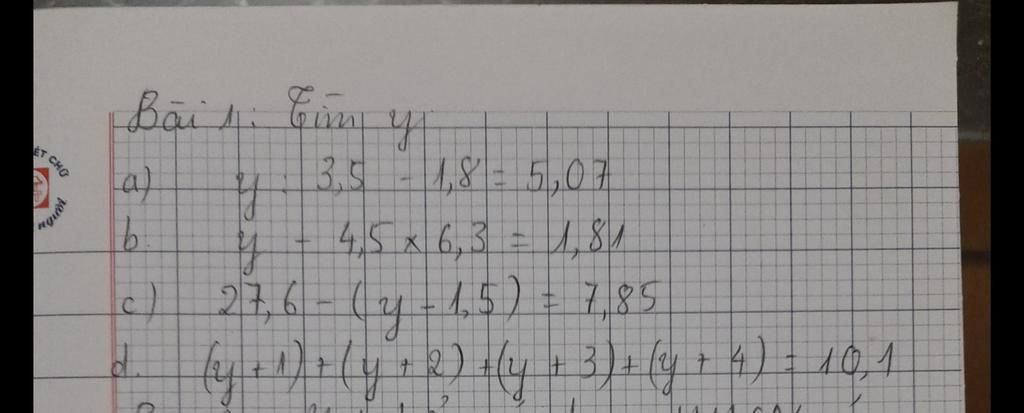 Bài 1: Tìm y
a) y : 3,5 - 1,8 = 5,07
b. y - 4,5 × 6,3 = 1,81
c) 27,6 - (y - 1,5) = 7,85
d. (y + 1) + (y + 2) + (y + 3) + (y + 4) = 10,1